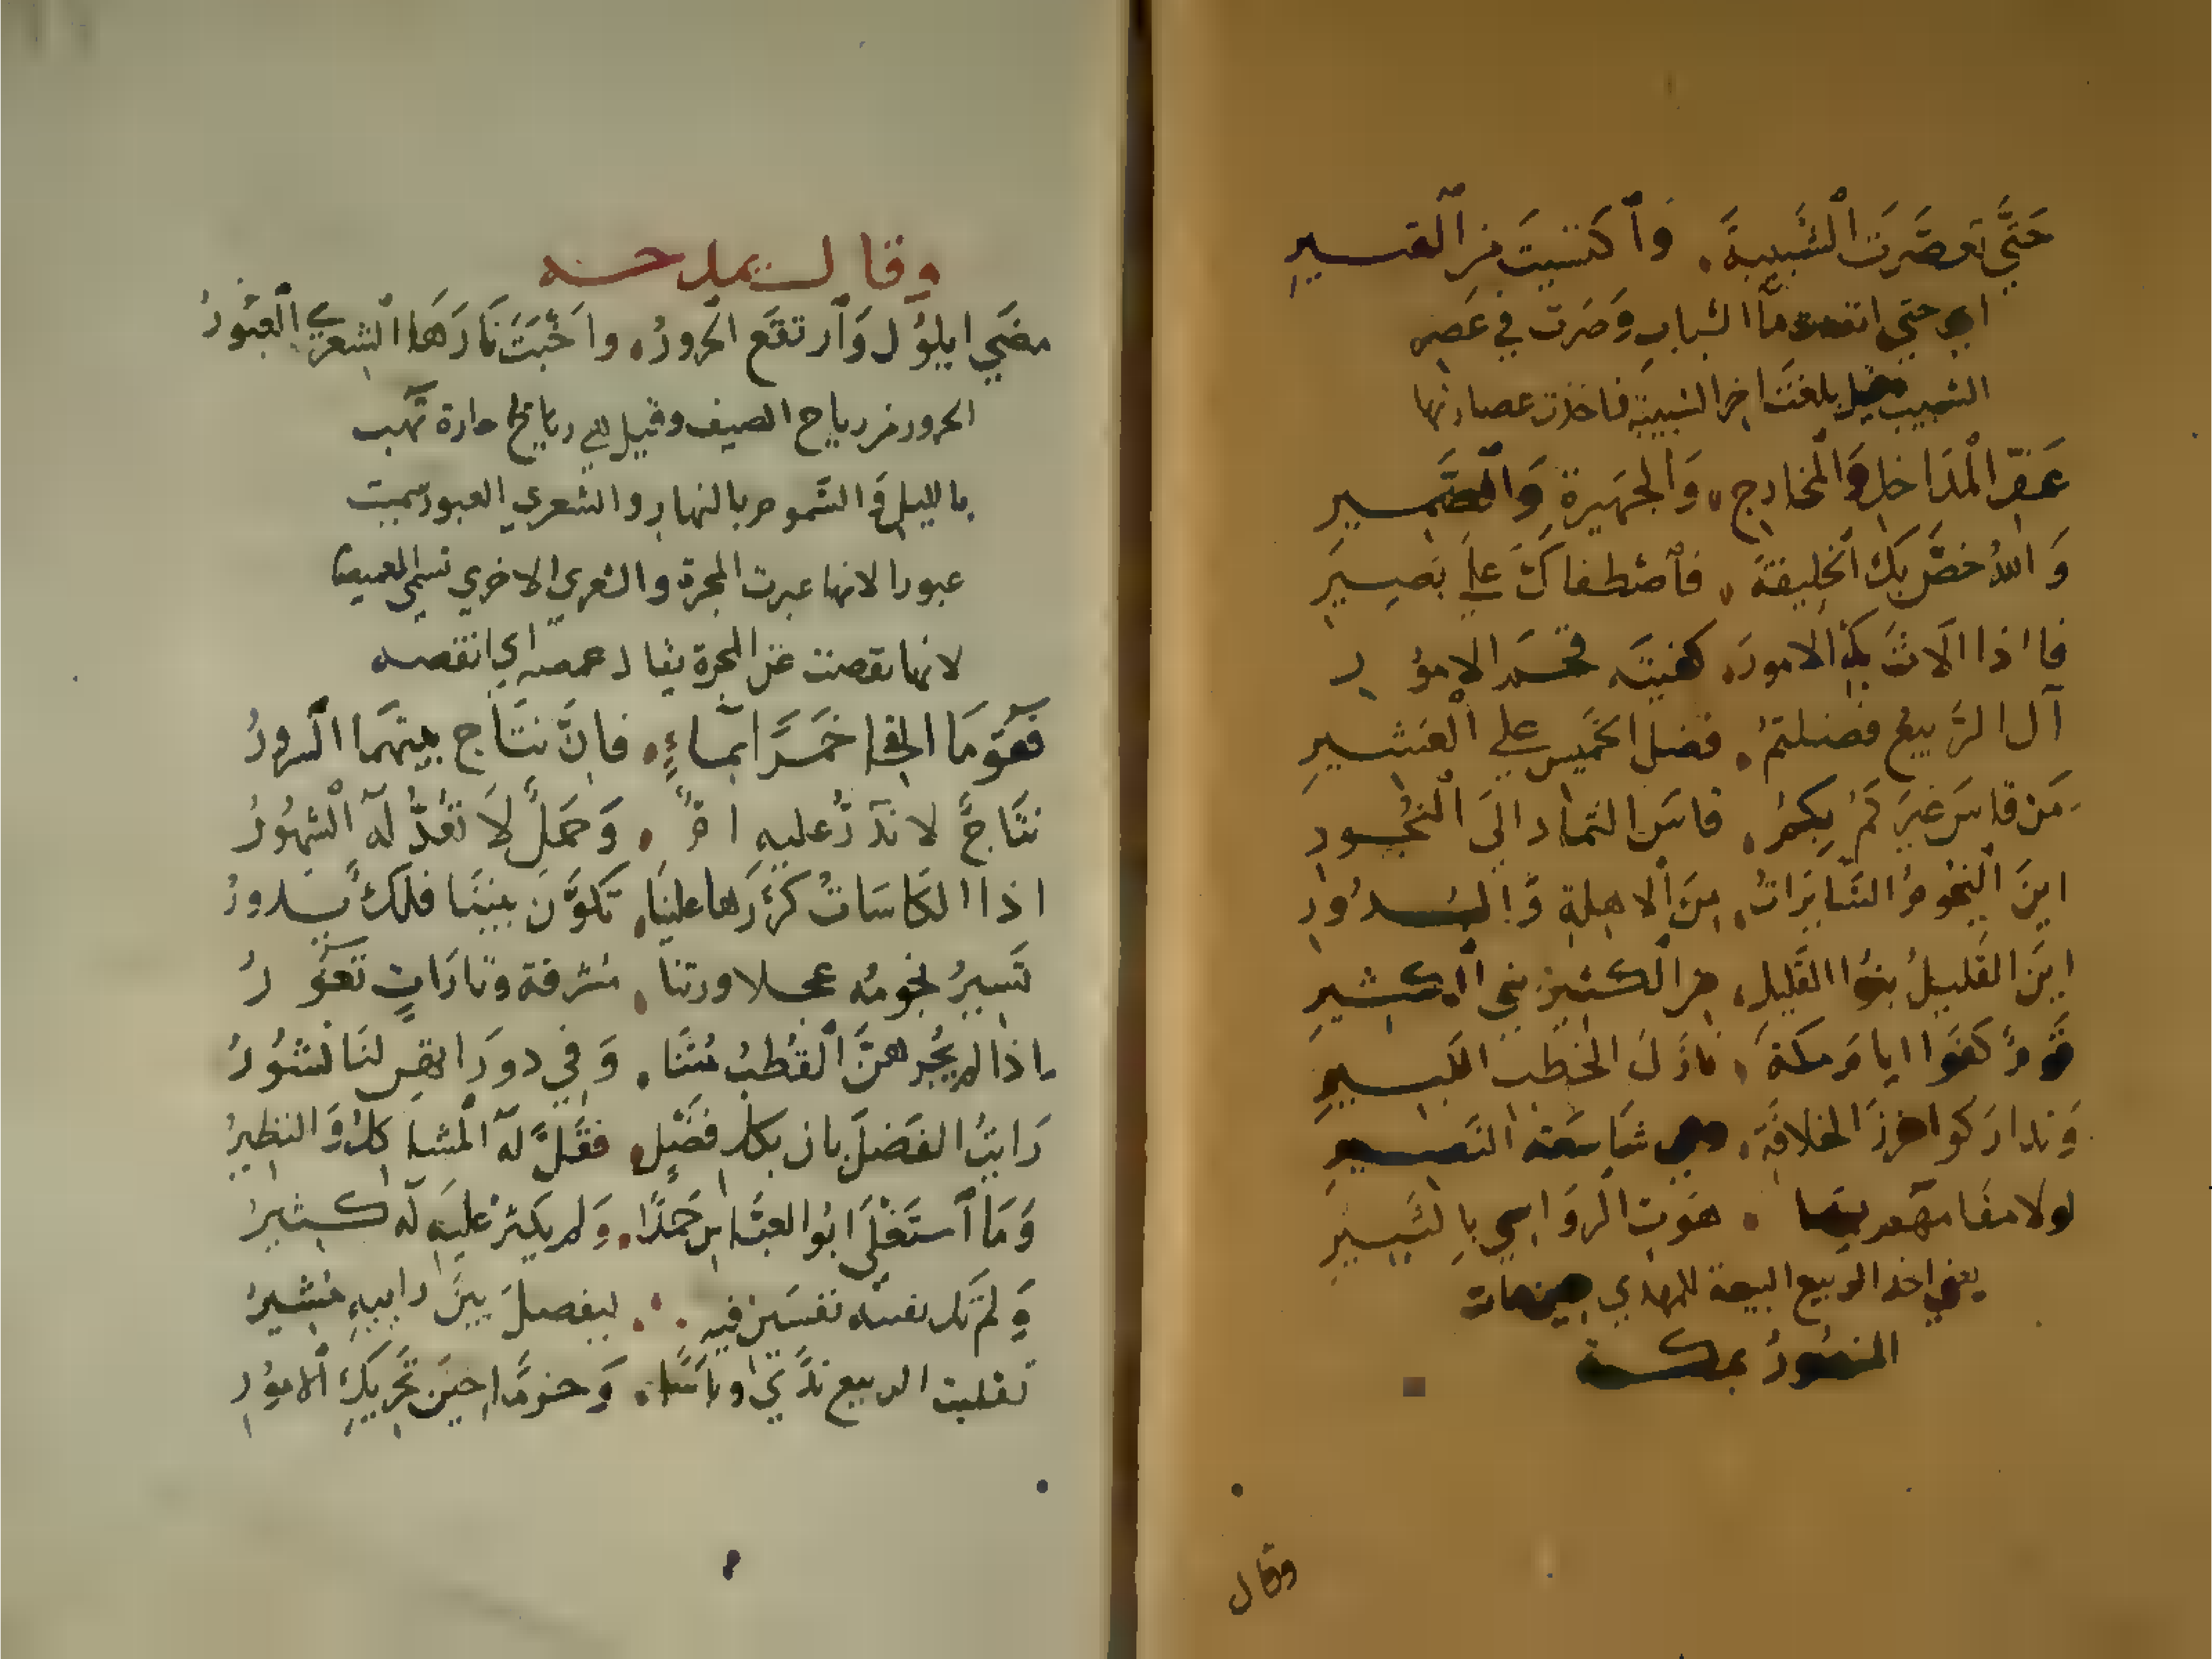 حَتَّي تعَصَّرَت الْشَّبِيبةَ . وَاكتسيتَ من القتــير
اي حتي انقضي ما الشباب وَصَرت في عَصر
الشبيب وقيل بلغت اخر الشبيبة فاخذت عصارتها
عَفّ الْمدَاخل وَالْمخارج . وَالجهيرة وَالضَّمــير
وَاللهُ خصَّ بك الخليفةَ . فاصْطفاكَ علي بَصــيرِ
فاذا الَاثَ بك الامورَ . كفيتَه قحــم الامور
آل الرَّبيع فضلتمُ . فضل الخَميس علي العَشــير
مَن قاسَ غيرَكُمُ بِكمُ . قاسَ الثماد الَى الْبُحــور
اينَ النجُومُ التَّابَرَاتُ . منَ الاهلة وَالبــدُور
اينَ القَليلُ بنُوا القَليل . من الكثير بني الكــثير
قَومٌ كفَوا ايامَ مكةَ . نازلَ الخطب الكبــير
وَتداركوا حرزَ الخلافَة . وهي شَاسعَة النَصــير
لولا مقامهمُ بها . هَوت الروَاسي بِالثبــير
يعني اخذ الربيع البيعة للمهدي حين مات
المنصُورُ بمكــة
وقال
وقالــ يمدحــه
مضَي ايلوُل وَارتفعَ الحرورُ . واخبَت نَارَهَا الشعرَي العَبُورُ
الحرور من رياح الصيف وقيل هي رياح حارة تهب
بالليل وَالسَّموم بالنهار والشعري العبور سميت
عبورا لانها عبرت المجرة والشعري الاخري تسمي الغميصا
لانها نقصت عن المجرة يقال غمصه اي انتقصه
فقوُمَا الْقِحا خَمــرًا بمــاءٍ . فانَّ نتَاج بينهمَا السرورُ
نتَاجٌ لا تدُرُّ عليه امٌّ . وَحَملٌ لَا تعُدُّ لَهُ الشهُورُ
اذا الكَاسَاتُ كرَّرَها علينَا . تكوَّنَ بيننَا فلكٌ يــدورُ
تَسيرُ نجُومُه عجــلا وريثا . مشرقة وتارَاتٍ تغوُرُ
اذا لم يُجْرهنَّ القُطبُ مُتنَا . وَفي دورَاتهن لنَا نُشُورُ
رَايتُ الفَضلَ بان بكل فضْلٍ . فقَلَّ لَهُ الْمشاكلُ وَالنظيرُ
وَمَا اسْتَغْلَى ابُوا العبَّاس حَمدًا . وَلم يكثرْ عليَه لَه كــثيرُ
وَلم تَك نفسه نفسَين فيه . . ليفصلَ بينَ رايييه مُشيرُ
تقلبت الربيع ندَّي وبأسًا . وَحزمًا حينَ تحزبكَ الامُورُ